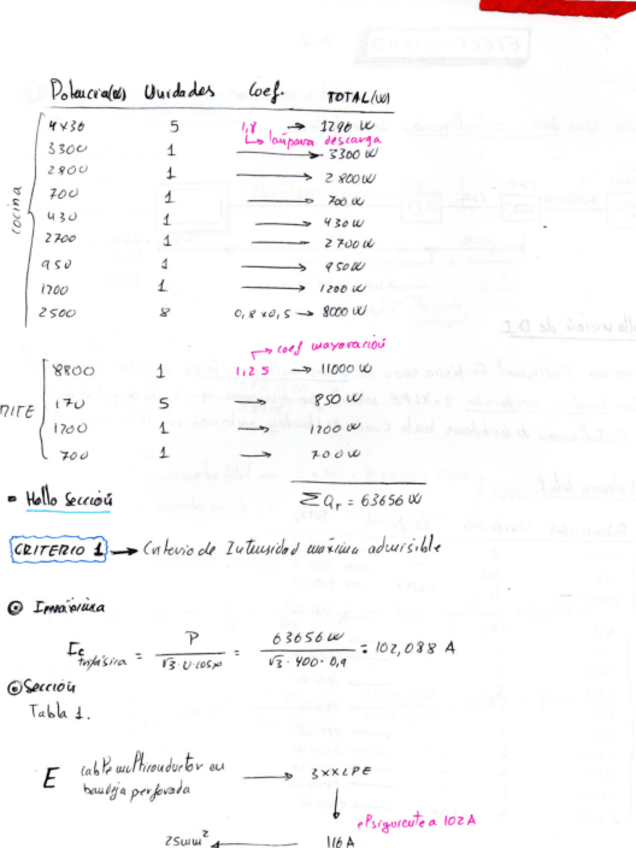 Potencia(w) Unidades Coef. TOTAL(w)
cocina
4x36 5 1,8 → 1296 W
↳ lámpara descarga
3300 1 → 3300 W
2800 1 → 2800 W
700 1 → 700 W
430 1 → 430 W
2700 1 → 2700 W
950 1 → 950 W
1200 1 → 1200 W
2500 8 0,8 x 0,5 → 8000 W
→ coef mayoración
RITE
8800 1 1,25 → 11000 W
170 5 → 850 W
1200 1 → 1200 W
700 1 → 700 W
- Hallo Sección
ΣQr = 63656 W
CRITERIO 1 → Criterio de Intensidad máxima admisible
⊙ Imáxima
Ic trifásica = P / √3·U·cosφ = 63656 W / √3·400·0,9 = 102,088 A
⊙ Sección
Tabla 1.
E cable multiconductor en bandeja perforada → 3xXLPE
↓
el siguiente a 102A
25mm² ← 116 A